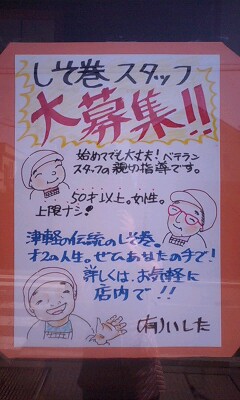 しそ巻 スタッフ
大募集!!
始めてでも大丈夫!ベテラン
スタッフの親切指導です。
50才以上。女性。
上限ナシ!
津軽の伝統のしそ巻。
才2の人生。ぜひあなたの手で!
詳しくは、お気軽に
店内で!!
(有)いした